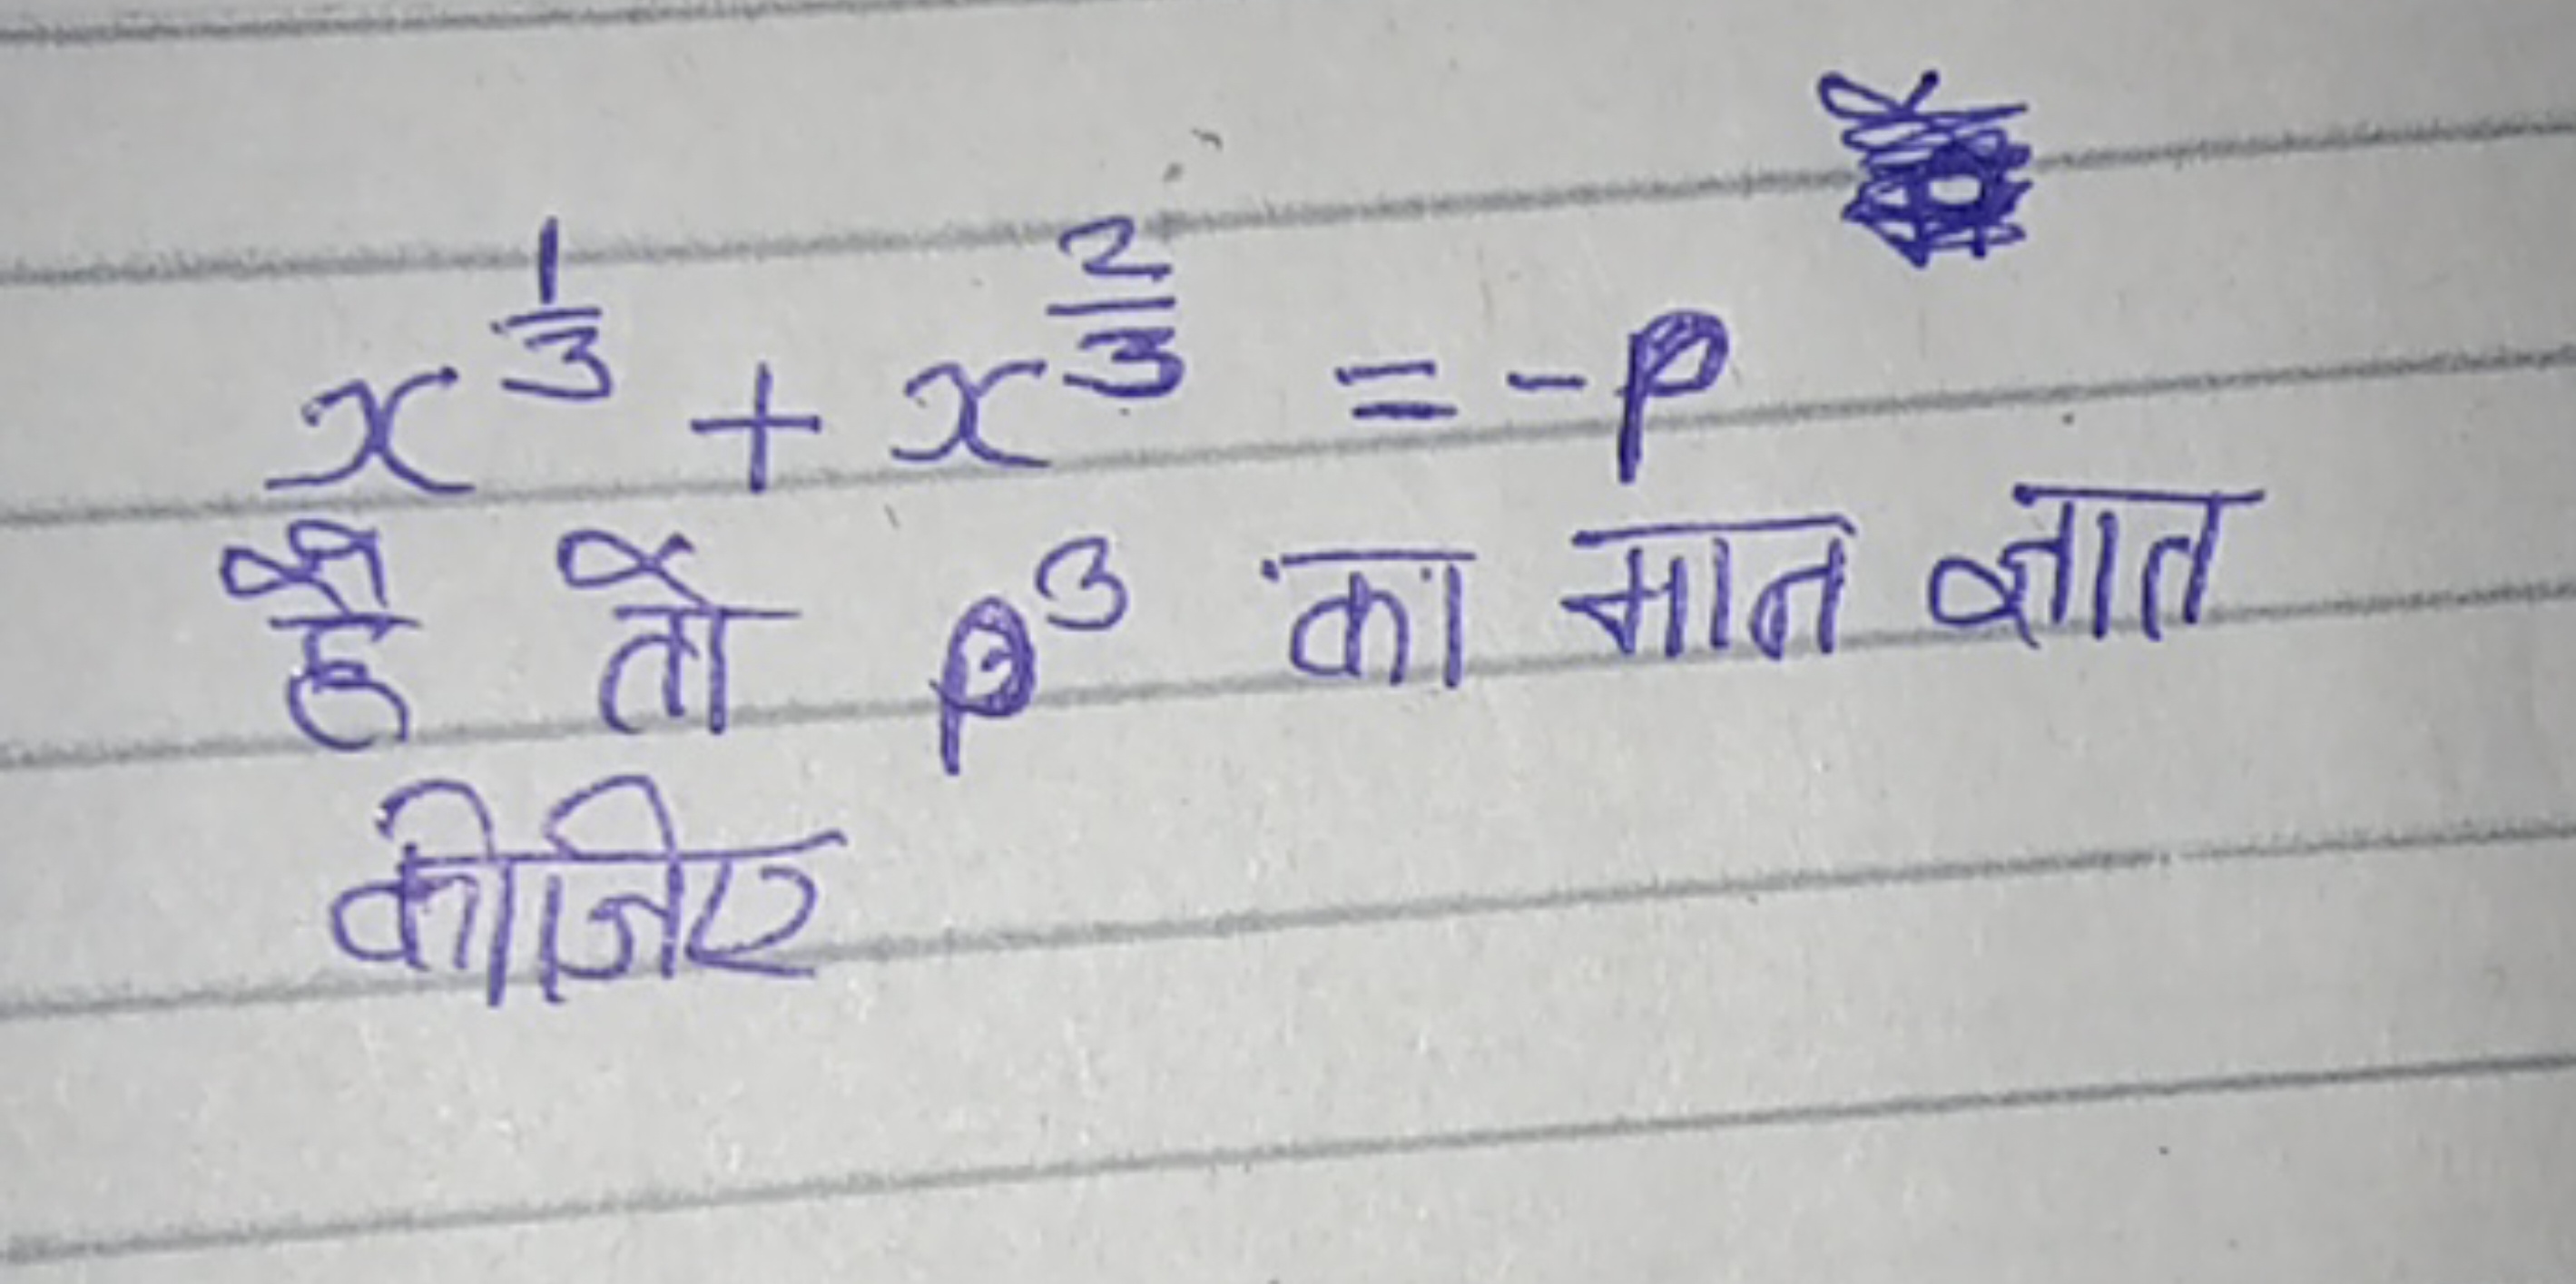 x^{1/3} + x^{2/3} = -p
है तो p³ का मान ज्ञात
कीजिए